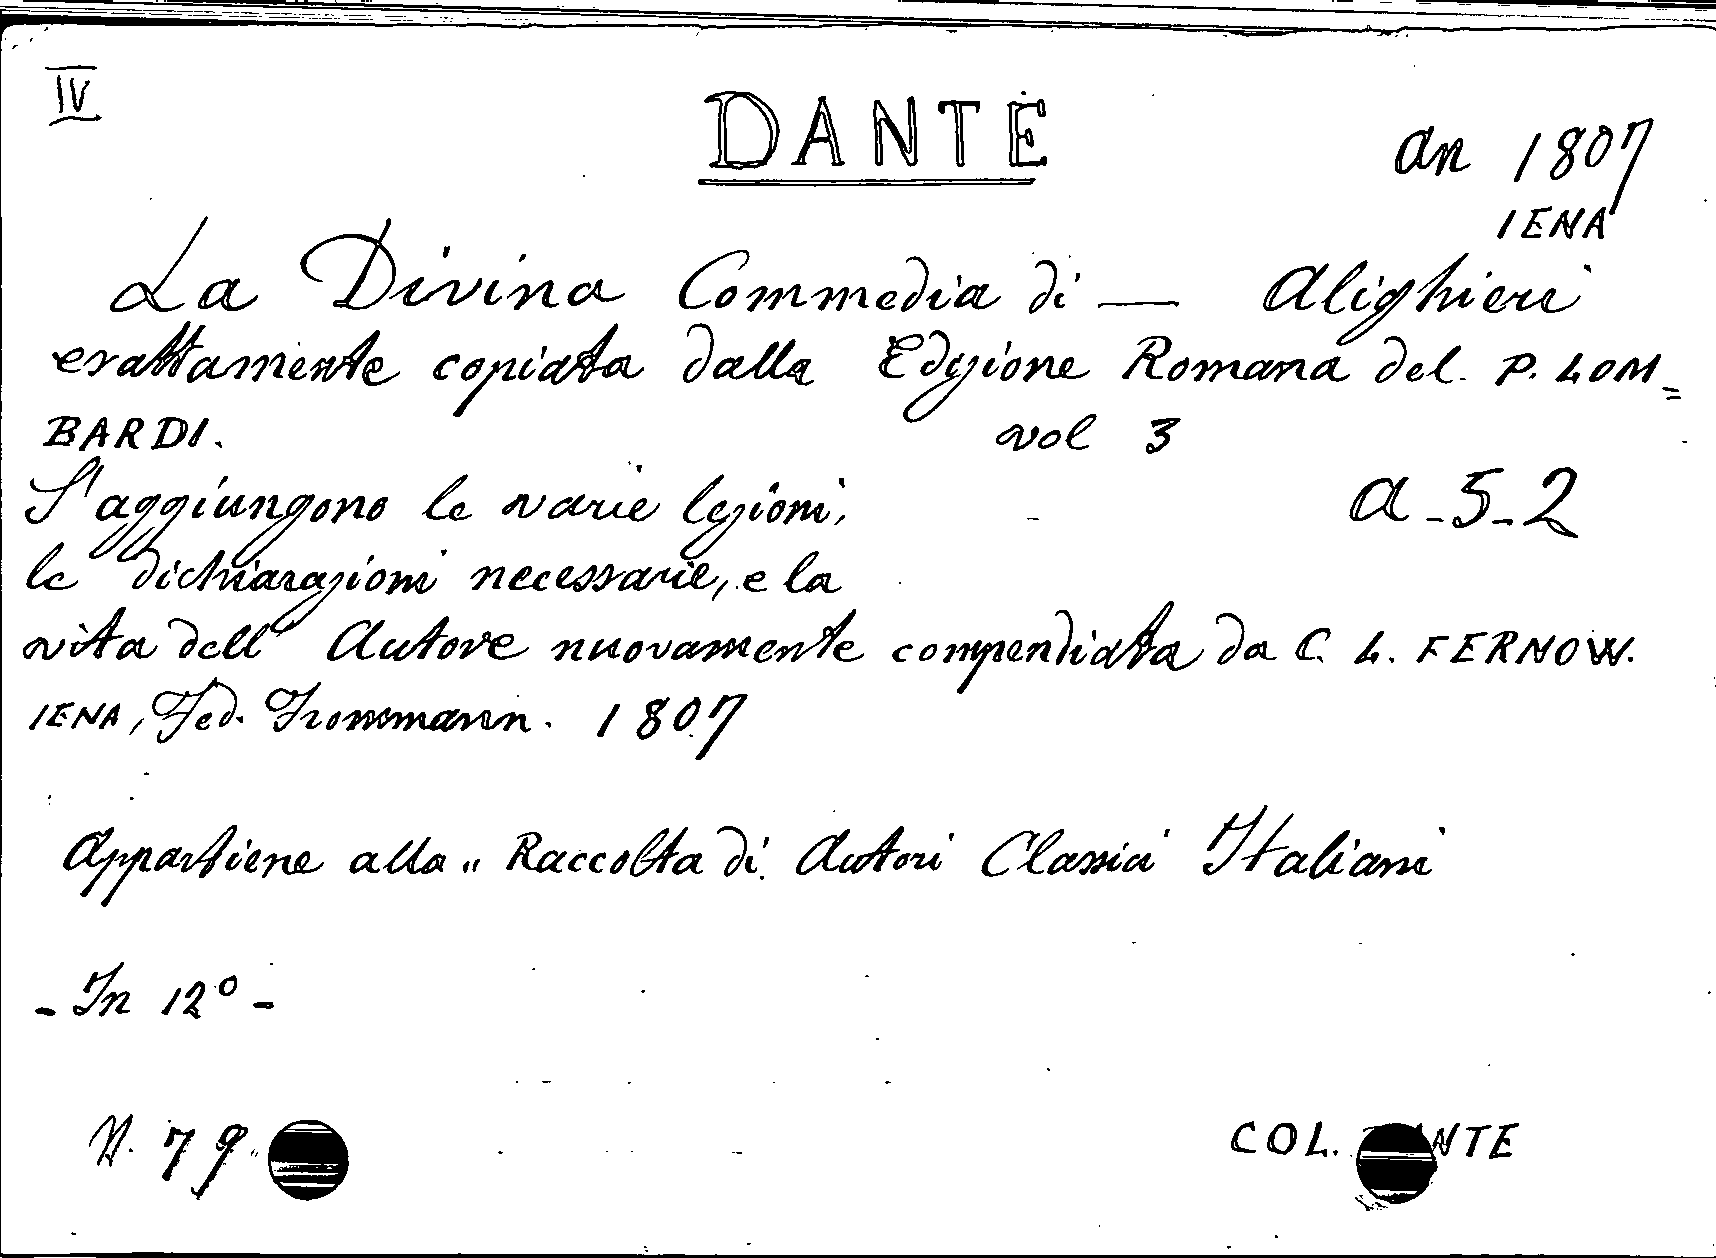 IV
DANTE
an 1807
IENA
La Divina Commedia di — Alighieri
esattamente copiata dalla Edizione Romana del P. LOM=
BARDI. vol 3
S'aggiungono le varie lezioni, a-5-2
le dichiarazioni necessarie, e la
vita dell' Autore nuovamente compendiata da C. L. FERNOW.
IENA, Fed. Frommann. 1807
Appartiene alla " Raccolta di Autori Classici Italiani
- In 12° -
N. 79.
COL. DANTE